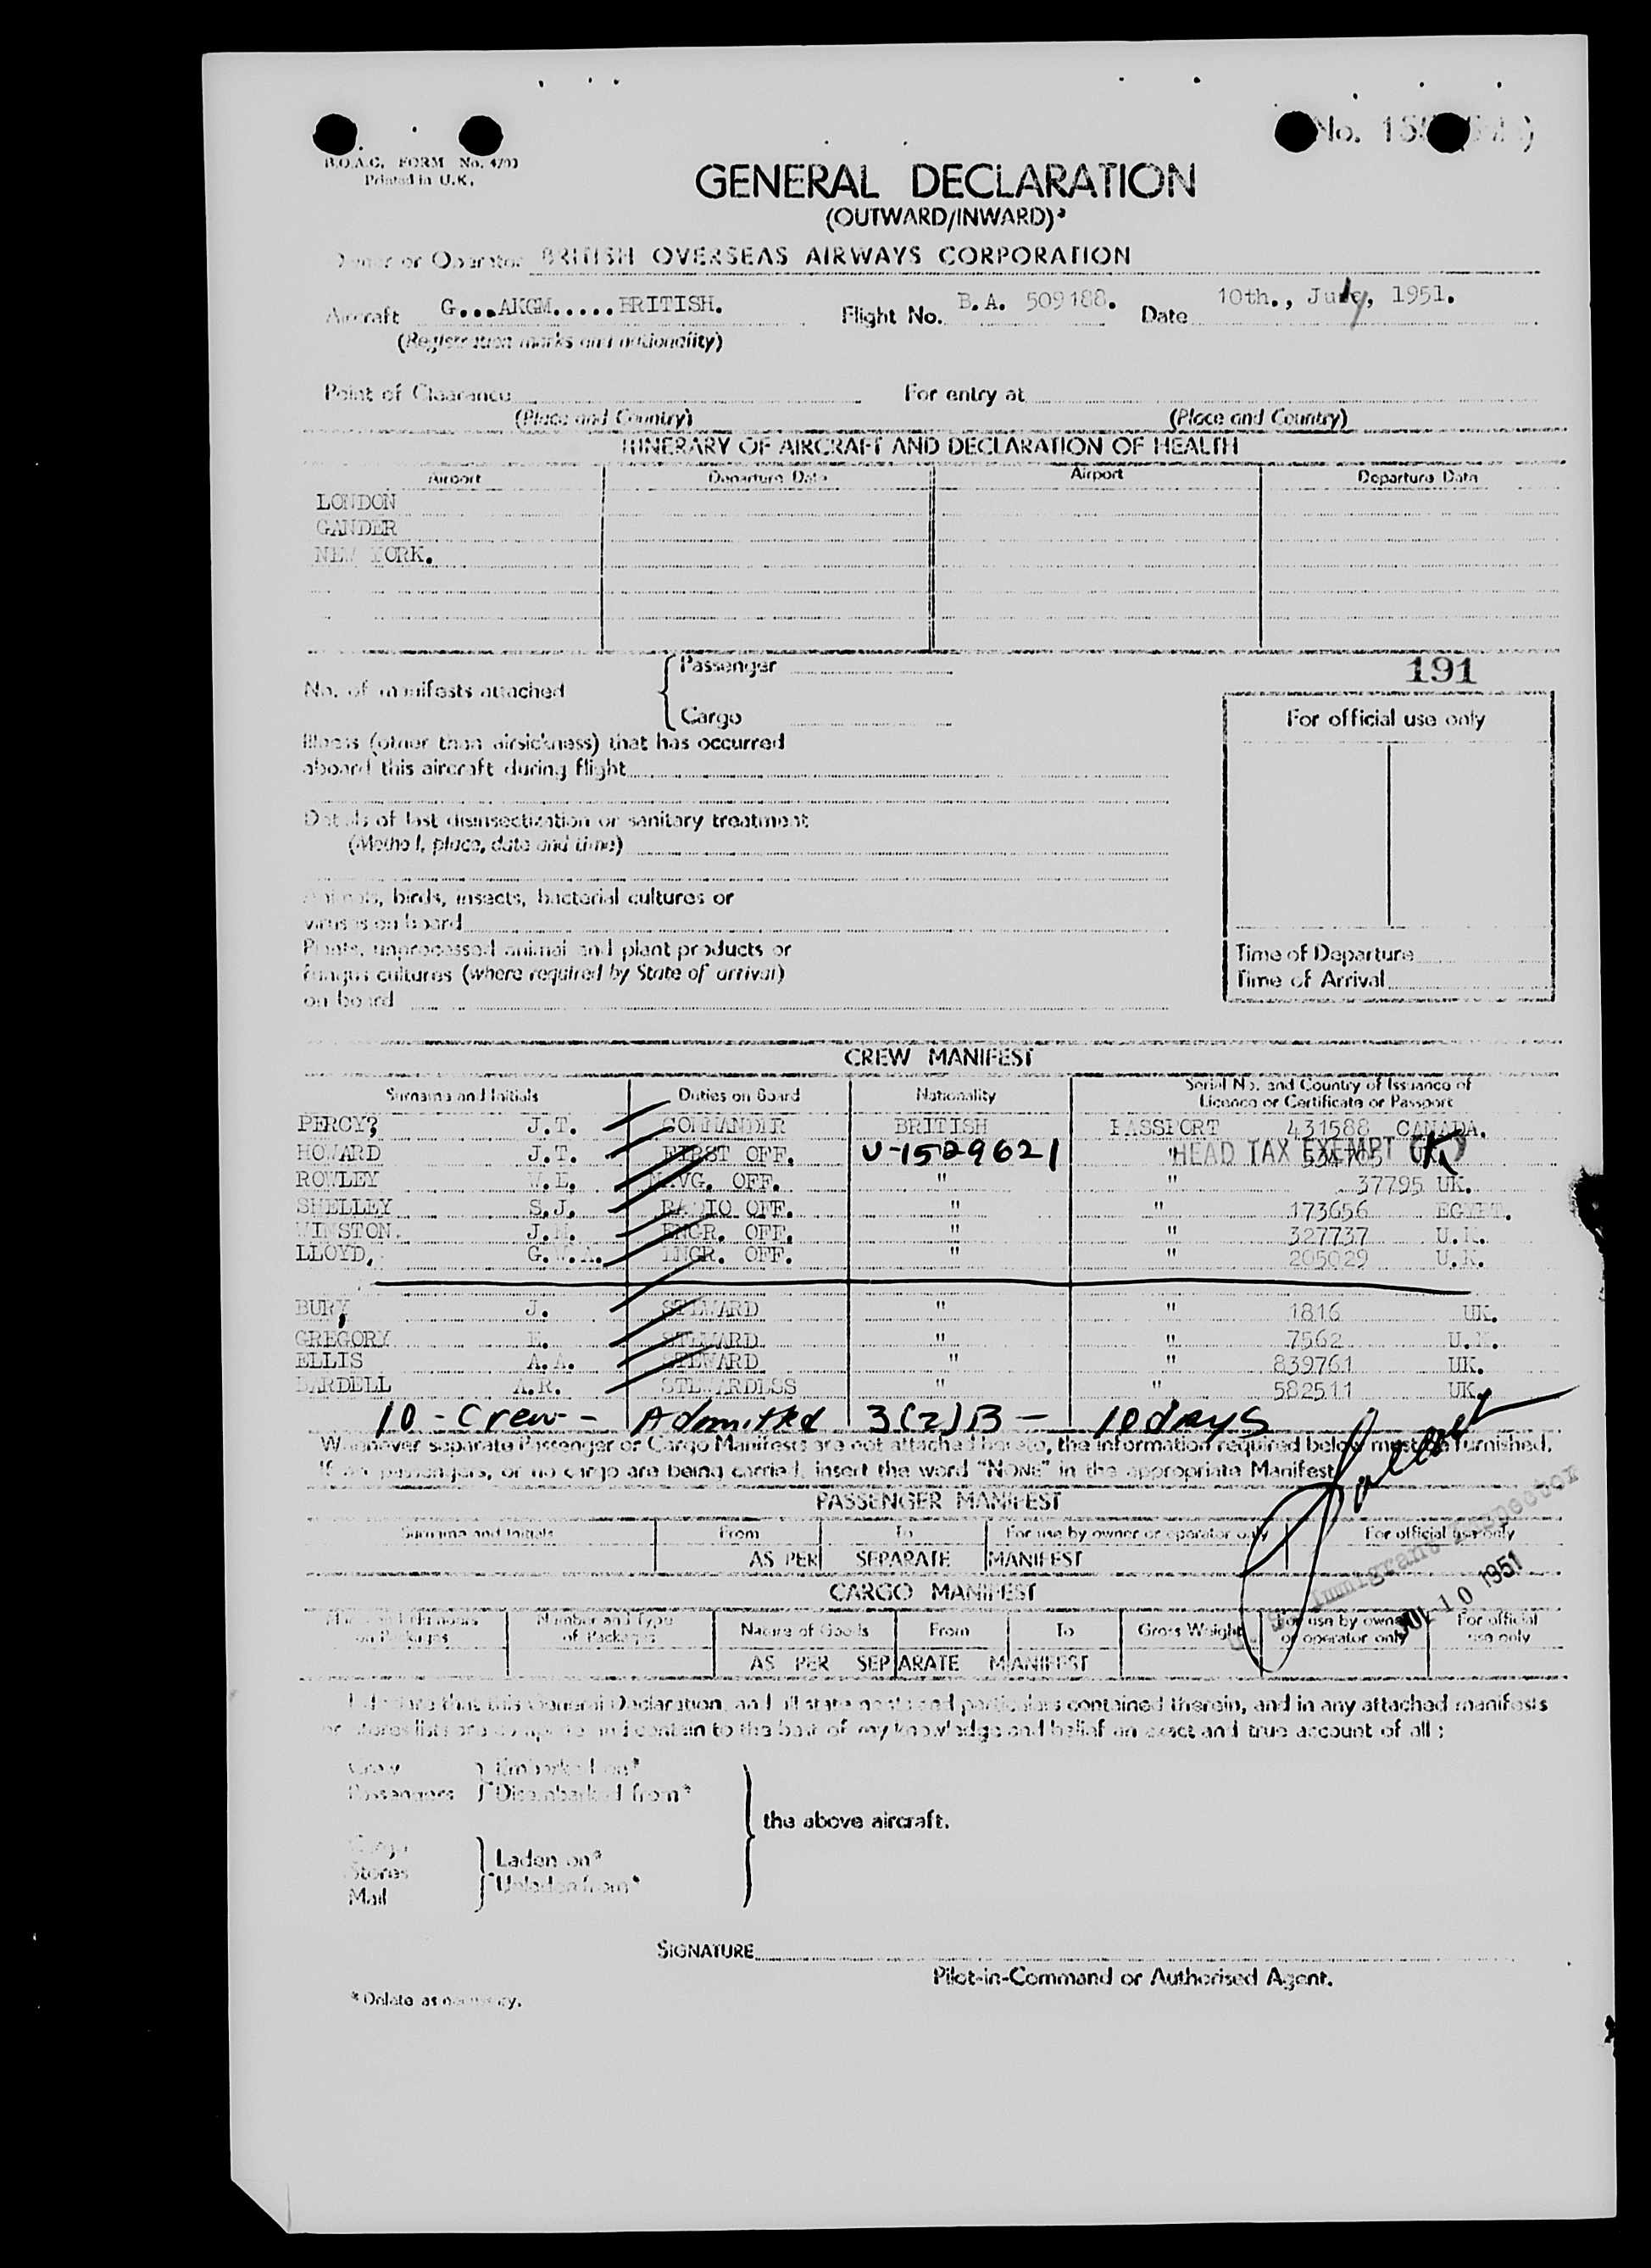 B.O.A.C. FORM No. 4703
Printed in U.K.
No. 15
GENERAL DECLARATION
(OUTWARD/INWARD)*
Owner or Operator BRITISH OVERSEAS AIRWAYS CORPORATION
Aircraft G...AKGM.....BRITISH. Flight No. B.A. 509188. Date 10th., July, 1951.
(Registration marks and nationality)
Point of Clearance For entry at
(Place and Country) (Place and Country)
ITINERARY OF AIRCRAFT AND DECLARATION OF HEALTH
Airport Departure Date Airport Departure Date
LONDON
GANDER
NEW YORK.
Passenger
191
No. of manifests attached
Cargo
For official use only
Illness (other than airsickness) that has occurred
aboard this aircraft during flight
Details of last disinsectization or sanitary treatment
(Method, place, date and time)
Animals, birds, insects, bacterial cultures or
viruses on board
Plants, unprocessed animal and plant products or
fungus cultures (where required by State of arrival)
on board
Time of Departure
Time of Arrival
CREW MANIFEST
Surname and Initials Duties on Board Nationality Serial No. and Country of Issuance of Licence or Certificate or Passport
PERCY? J.T. COMMANDER BRITISH PASSPORT 431588 CANADA.
HOWARD J.T. FIRST OFF. U-1529621 " UK. HEAD TAX EXEMPT
ROWLEY NAVG. OFF. " " 37795 UK.
SHELLEY S.J. RADIO OFF. " " 173656 EGYPT.
WINSTON. ENGR. OFF. " " 327737 U.K.
LLOYD, ENGR. OFF. " " 205029 U.K.
BURY, J. STEWARD " " 1816 UK.
GREGORY STEWARD " " 7562 U.K.
ELLIS A.A. STEWARD " " 839761 UK.
BARDELL A.R. STEWARDESS " " 582511 UK.
10 - Crew - Admitted 3(2)B - 10 days
Whenever separate Passenger or Cargo Manifests are not attached hereto, the information required below must be furnished.
If no passengers, or no cargo are being carried, insert the word "NONE" in the appropriate Manifest
PASSENGER MANIFEST
Surname and Initials From To For use by owner or operator only For official use only
AS PER SEPARATE MANIFEST
Immigrant Inspector
JUL 10 1951
CARGO MANIFEST
Marks and Numbers on Packages Number and Type of Packages Nature of Goods From To Gross Weight For use by owner or operator only For official use only
AS PER SEPARATE MANIFEST
I declare that this General Declaration, and all statements and particulars contained therein, and in any attached manifests
or stores lists are complete and contain to the best of my knowledge and belief an exact and true account of all :
Crew Embarked on*
Passengers Disembarked from*
the above aircraft.
Cargo
Stores Laden on*
Mail Unladen from*
SIGNATURE
Pilot-in-Command or Authorised Agent.
* Delete as necessary.